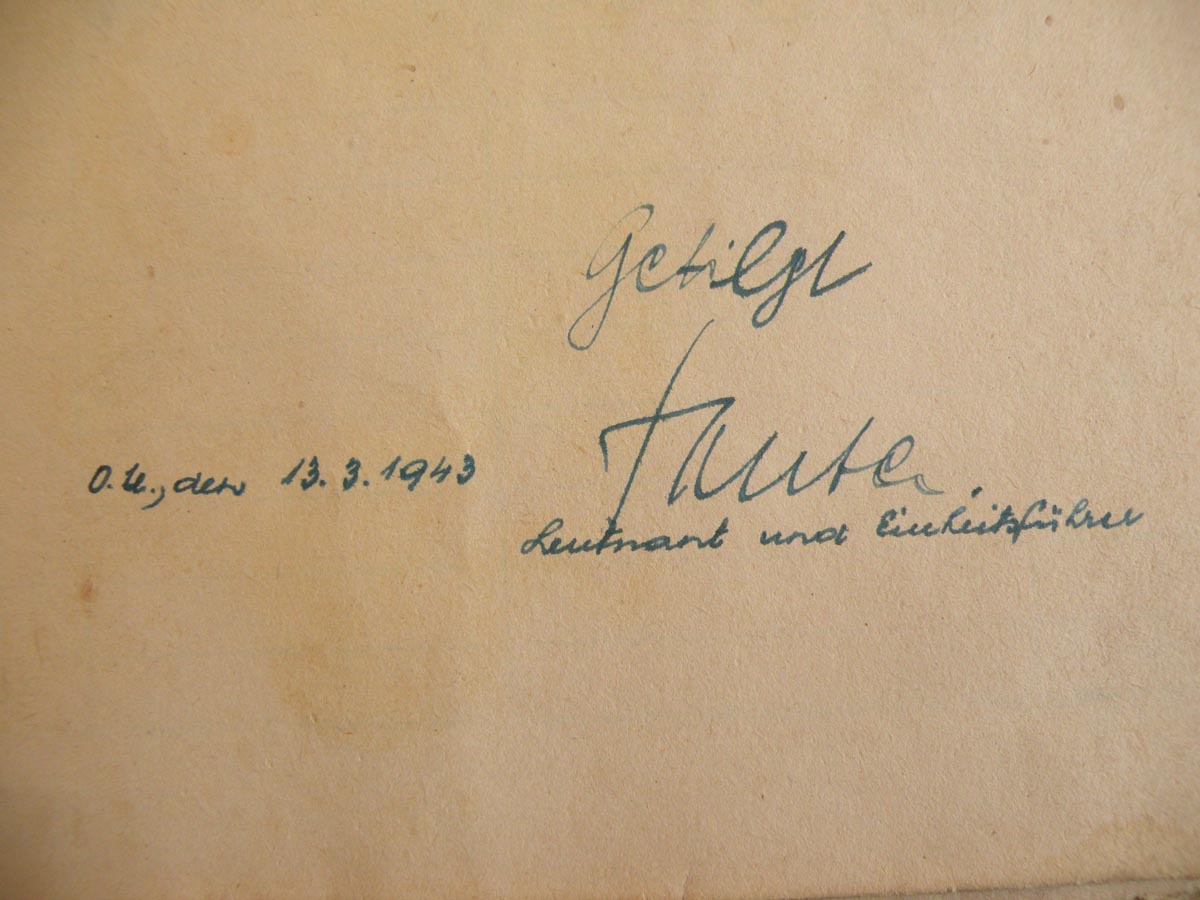 Getilgt
O.U., den 13.3.1943
Leutnant und Einheitsführer